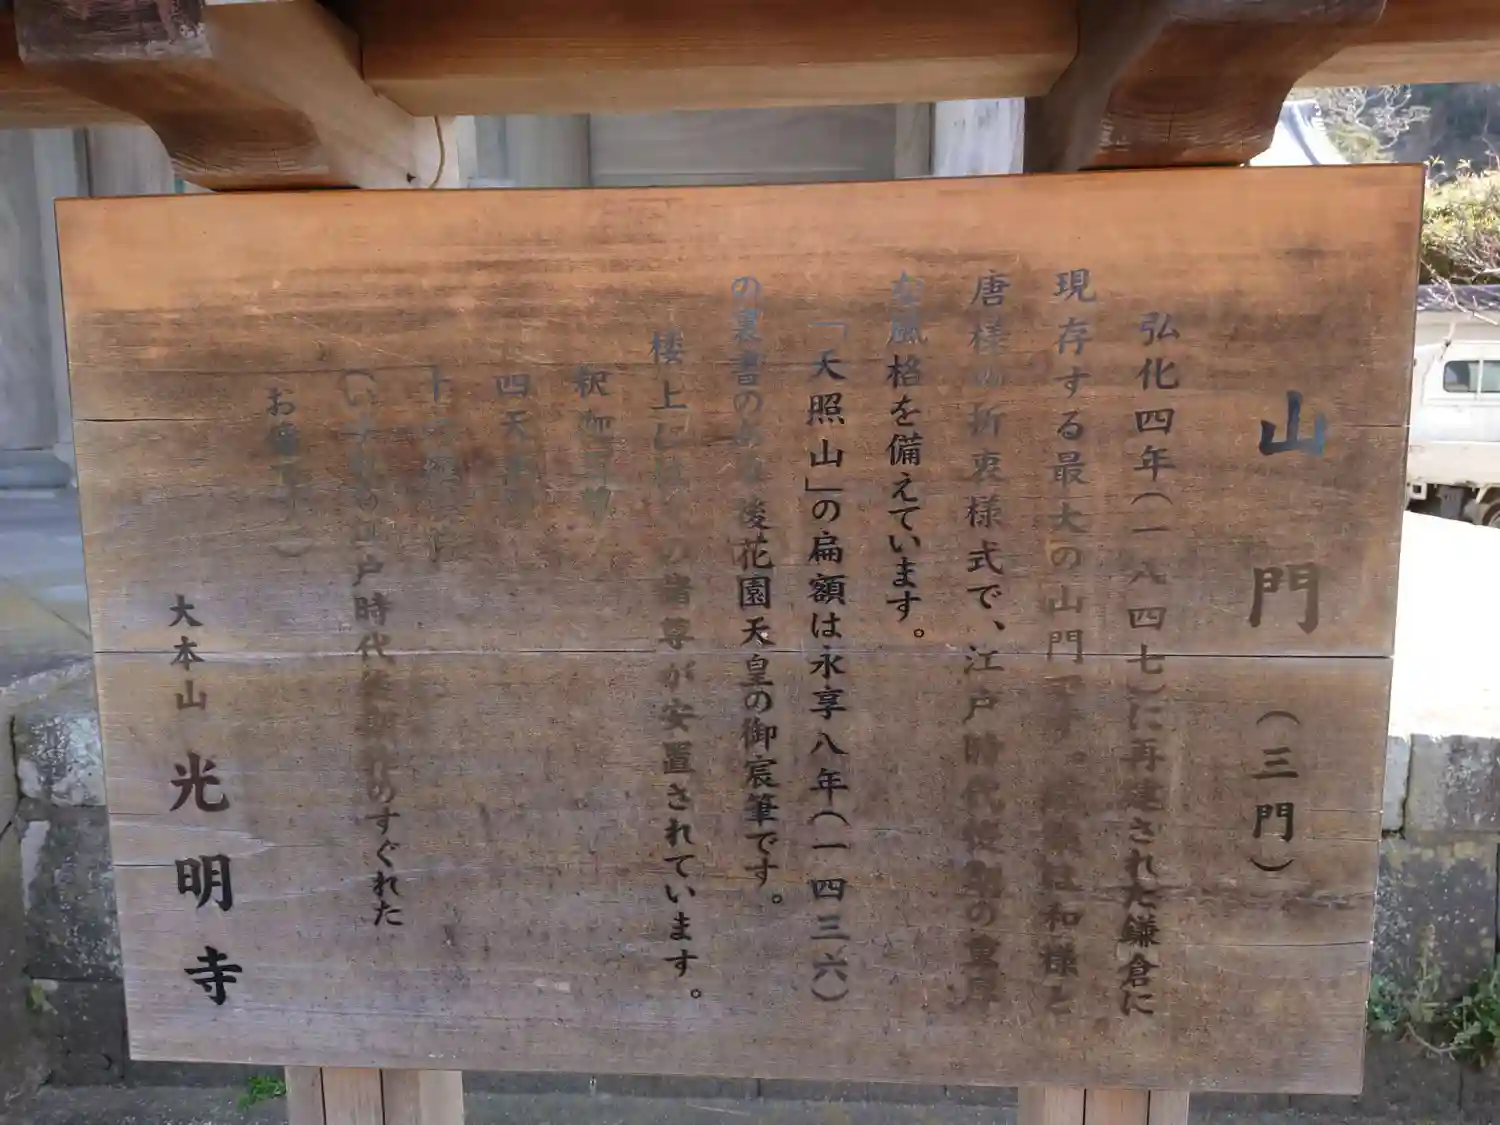 山門（三門）
弘化四年（一八四七）に再建された鎌倉に
現存する最大の山門です。は和様と
唐様の折衷様式で、江戸時代後期の重厚
な風格を備えています。
「天照山」の扁額は永享八年（一四三六）
の裏書のある後花園天皇の御宸筆です。
楼上にはの諸尊が安置されています。
釈迦三
四天王
十六羅漢
（いずれも江戸時代後期のすぐれた
お像です。）
大本山 光明寺